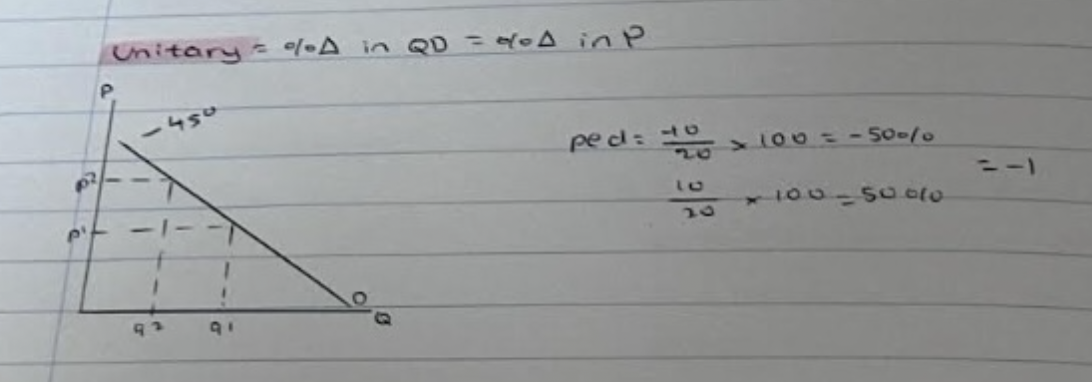 Unitary = %Δ in QD = %Δ in P
P
45°
P2
P1
q2 q1
D
Q
ped = -10/20 × 100 = -50%
10/20 × 100 = 50%
= -1